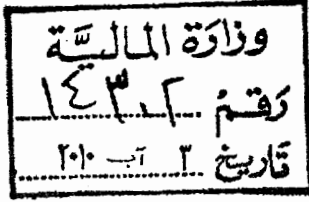 وزارة المالية
رقم ١٤٣٠٢
تاريخ ٣ آب ٢٠١٠